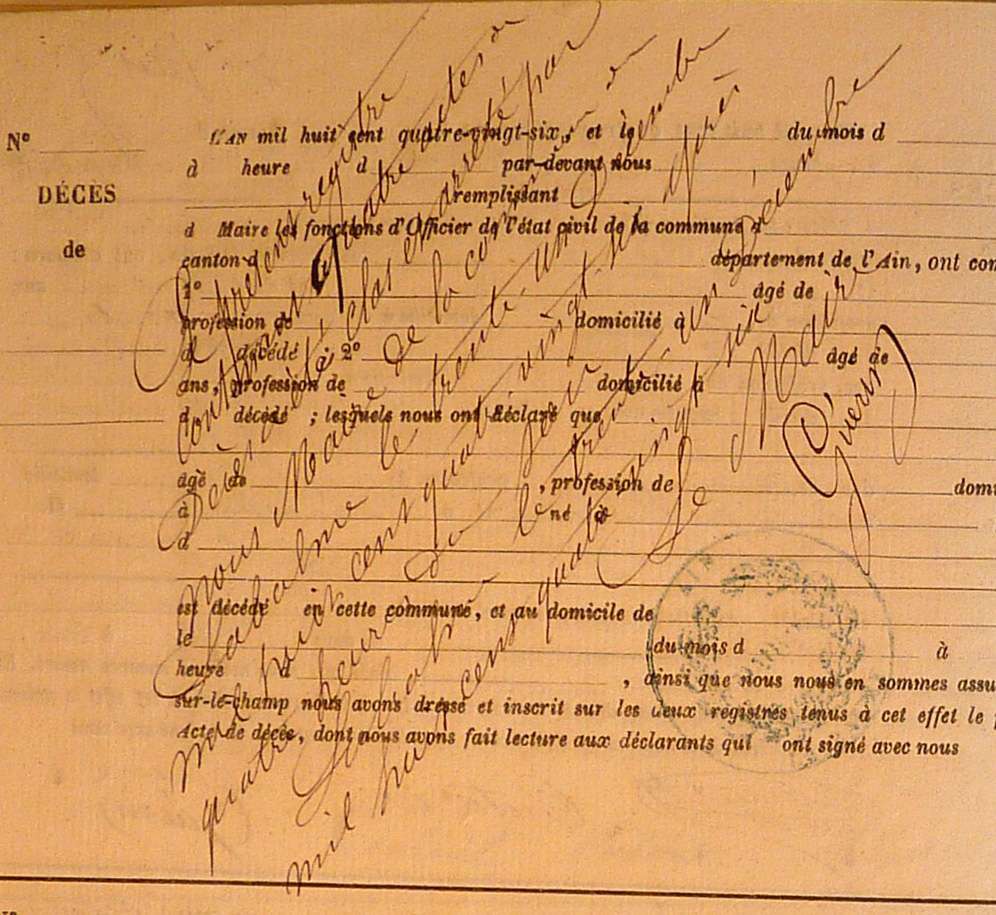 N°
DÉCÈS
de
L'AN mil huit cent quatre-vingt-six, et le du mois d
à heure d par-devant nous
remplissant
d Maire les fonctions d'Officier de l'état civil de la commune d
canton d département de l'Ain, ont com
1° âgé de
profession de domicilié à
d décédé ; 2° âgé de
ans, profession de domicilié à
d décédé ; lesquels nous ont déclaré que
âgé de , profession de domi
à né à
d
est décédé en cette commune, et au domicile de
le du mois d à
heure d , ainsi que nous nous en sommes assu
sur-le-champ nous avons dressé et inscrit sur les deux registres tenus à cet effet le p
Acte de décès, dont nous avons fait lecture aux déclarants qui ont signé avec nous
Le présent registre
contenant quatre actes de
Décès a été clos et arrêté par
nous Maire de la commune de
le trente-un Décembre
mil huit cent quatre vingt six après
quatre heures du soir
le trente-un Décembre
mil huit cent quatre vingt six
Le Maire